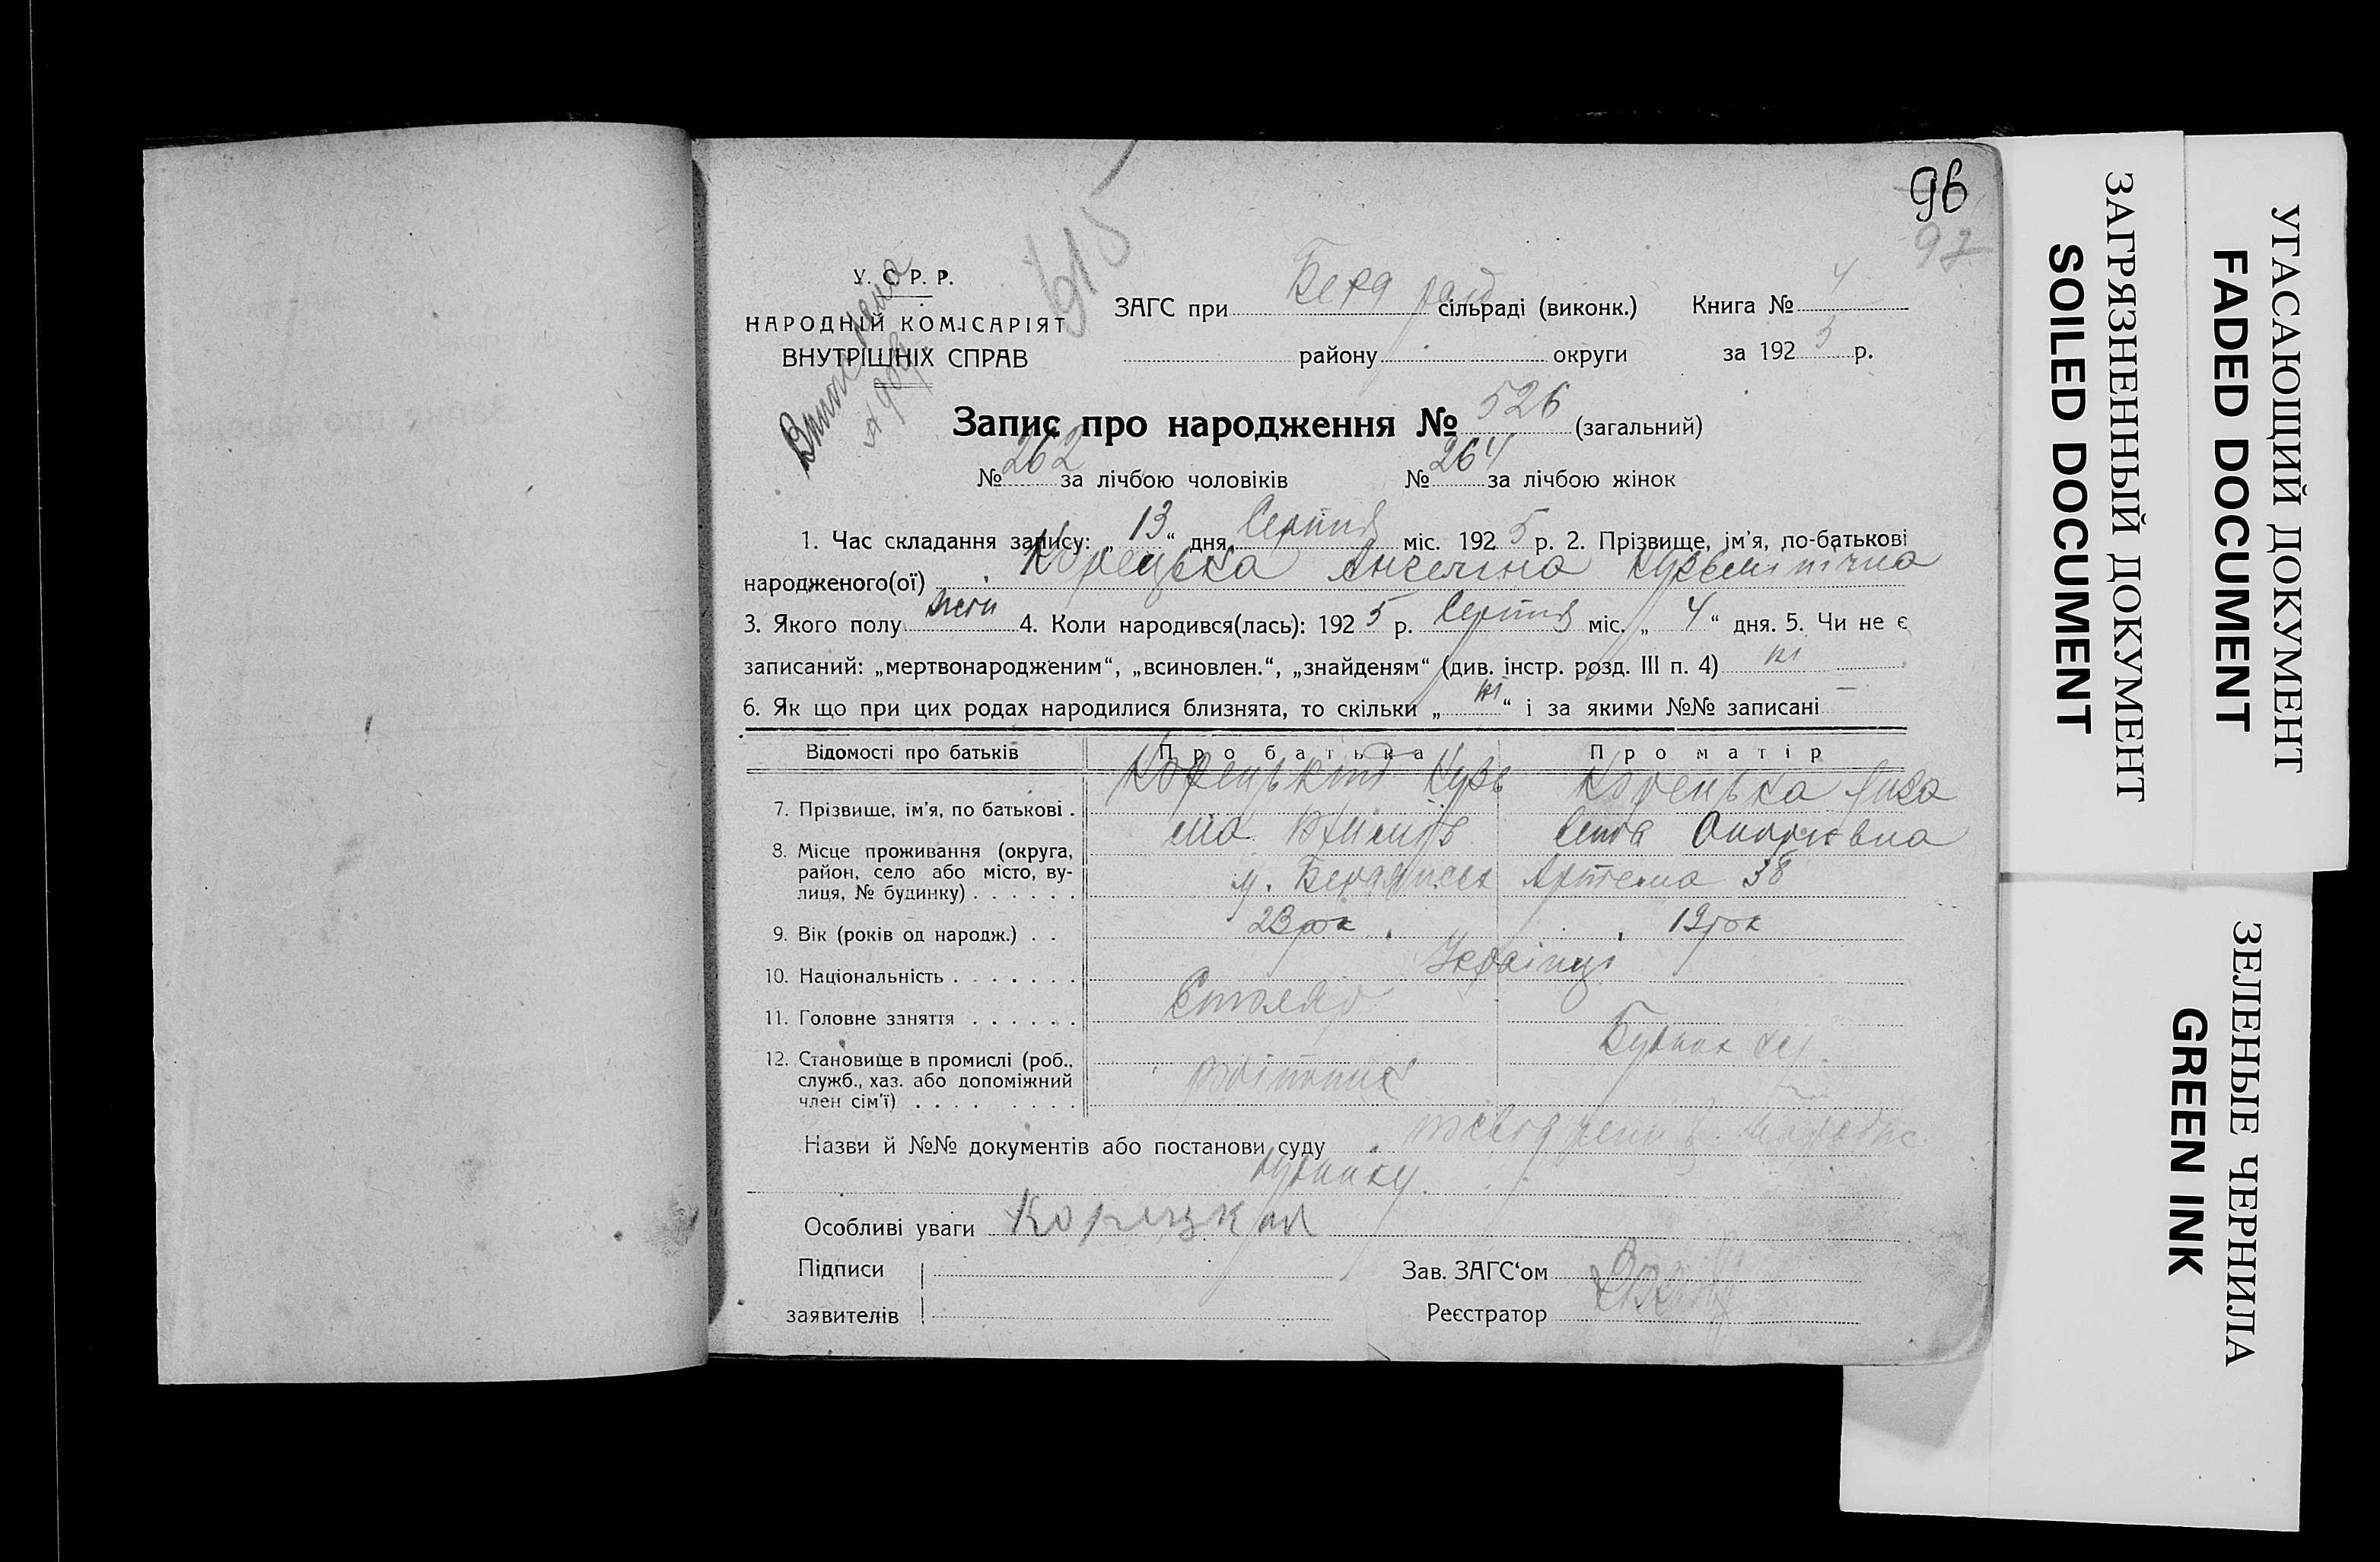 96
97
615
У. С. Р. Р.
НАРОДНІЙ КОМІСАРІЯТ
ВНУТРІШНІХ СПРАВ
ЗАГС при сільраді (виконк.) Книга № 4
району округи за 1925 р.
Запис про народження № 526 (загальний)
№ 262 за лічбою чоловіків № 264 за лічбою жінок
1. Час складання запису: „13“ дня Серпня міс. 1925 р. 2. Прізвище, ім’я, по-батькові
народженого(ої) Корецька Ангеліна Кузьмінічна
3. Якого полу жін 4. Коли народився(лась): 1925 р. Серпня міс. „4“ дня. 5. Чи не є
записаний: „мертвонародженим“, „всиновлен.“, „знайденям“ (див. інстр. розд. III п. 4) ні
6. Як що при цих родах народилися близнята, то скільки „ні“ і за якими №№ записані —
Відомості про батьків Про батька Про матір
7. Прізвище, ім’я, по батькові . Корецький Кузь Корецька Лиза
ма
8. Місце проживання (округа,
район, село або місто, ву-
лиця, № будинку) . . . . . . м. Бердянськ Артема 38
9. Вік (років од народж.) . . 23 рок 19 рок
10. Національність . . . . . . . Українці
11. Головне заняття . . . . . . Столяр
12. Становище в промислі (роб.,
служб., хаз. або допоміжний
член сім’ї) . . . . . . . .
Назви й №№ документів або постанови суду
будинку
Особливі уваги Корецкая
Підписи
заявителів
Зав. ЗАГС‘ом
Реєстратор
ЗАГРЯЗНЕННЫЙ ДОКУМЕНТ
SOILED DOCUMENT
УГАСАЮЩИЙ ДОКУМЕНТ
FADED DOCUMENT
ЗЕЛЕНЫЕ ЧЕРНИЛА
GREEN INK